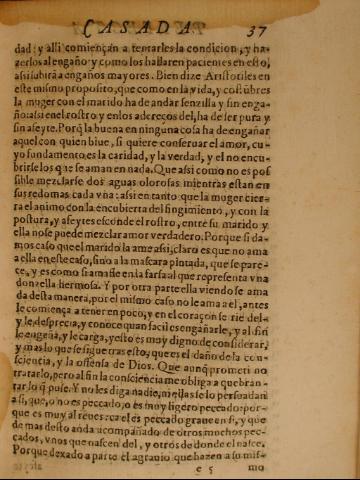 CASADA 37
dad: y alli comiençan a tentarles la condicion, y ha-
zerlos al engaño y como los hallaren pacientes en esto,
assi subirã a engaños mayores. Bien dize Aristoteles en
este mismo proposito, que como en la vida, y costũbres
la muger con el marido ha de andar senzilla y sin enga-
ño: assi en el rostro y en los adereços del, ha de ser pura y
sin afeyte. Porq̃ la buena en ninguna cosa ha de engañar
aquel con quien biue, si quiere conseruar el amor, cu-
yo fundamento es la caridad, y la verdad, y el no encu-
brirse los que se aman en nada. Que assi como no es pos
sible mezclarse dos aguas olorosas mientras estan en
sus redomas cada vna: assi en tanto que la muger cier-
ra el animo con la encubierta del fingimiẽto, y con la
postura, y afeytes esconde el rostro, entre su marido y
ella no se puede mezclar amor verdadero. Porque si da-
mos caso que el marido la ame assi, claro es que no ama
a ella en este caso, sino a la mascara pintada, que se pare-
ce, y es como si amasse en la farsa al que representa vna
donzella hermosa. Y por otra parte ella viendose ama
da desta manera, por el mismo caso no le ama a el, antes
le comiença a tener en poco, y en el coraçon se rie del-
y le desprecia, y conoce quan facil es engañarle, y al fin
le engaña, y le carga, y esto es muy digno de considerar,
y mas lo que se sigue tras esto, que es el daño de la con-
sciencia, y la offensa de Dios. Que aunq̃ prometi no
tratarlo, pero al fin la consciencia me obliga a quebran-
tar lo q̃ puse. Y no les diga nadie, ni ellas se lo persuadan
a si, que, o no es peccado, o es muy ligero peccado: por-
que es muy al reues, ca el es peccado graue en si, y que
de mas desto anda acompañado de otros muchos pec-
cados, vnos que nascen del, y otros de donde el nasce.
Porque dexado a parte el agrauio que hazen a su mis-
e 5 mo